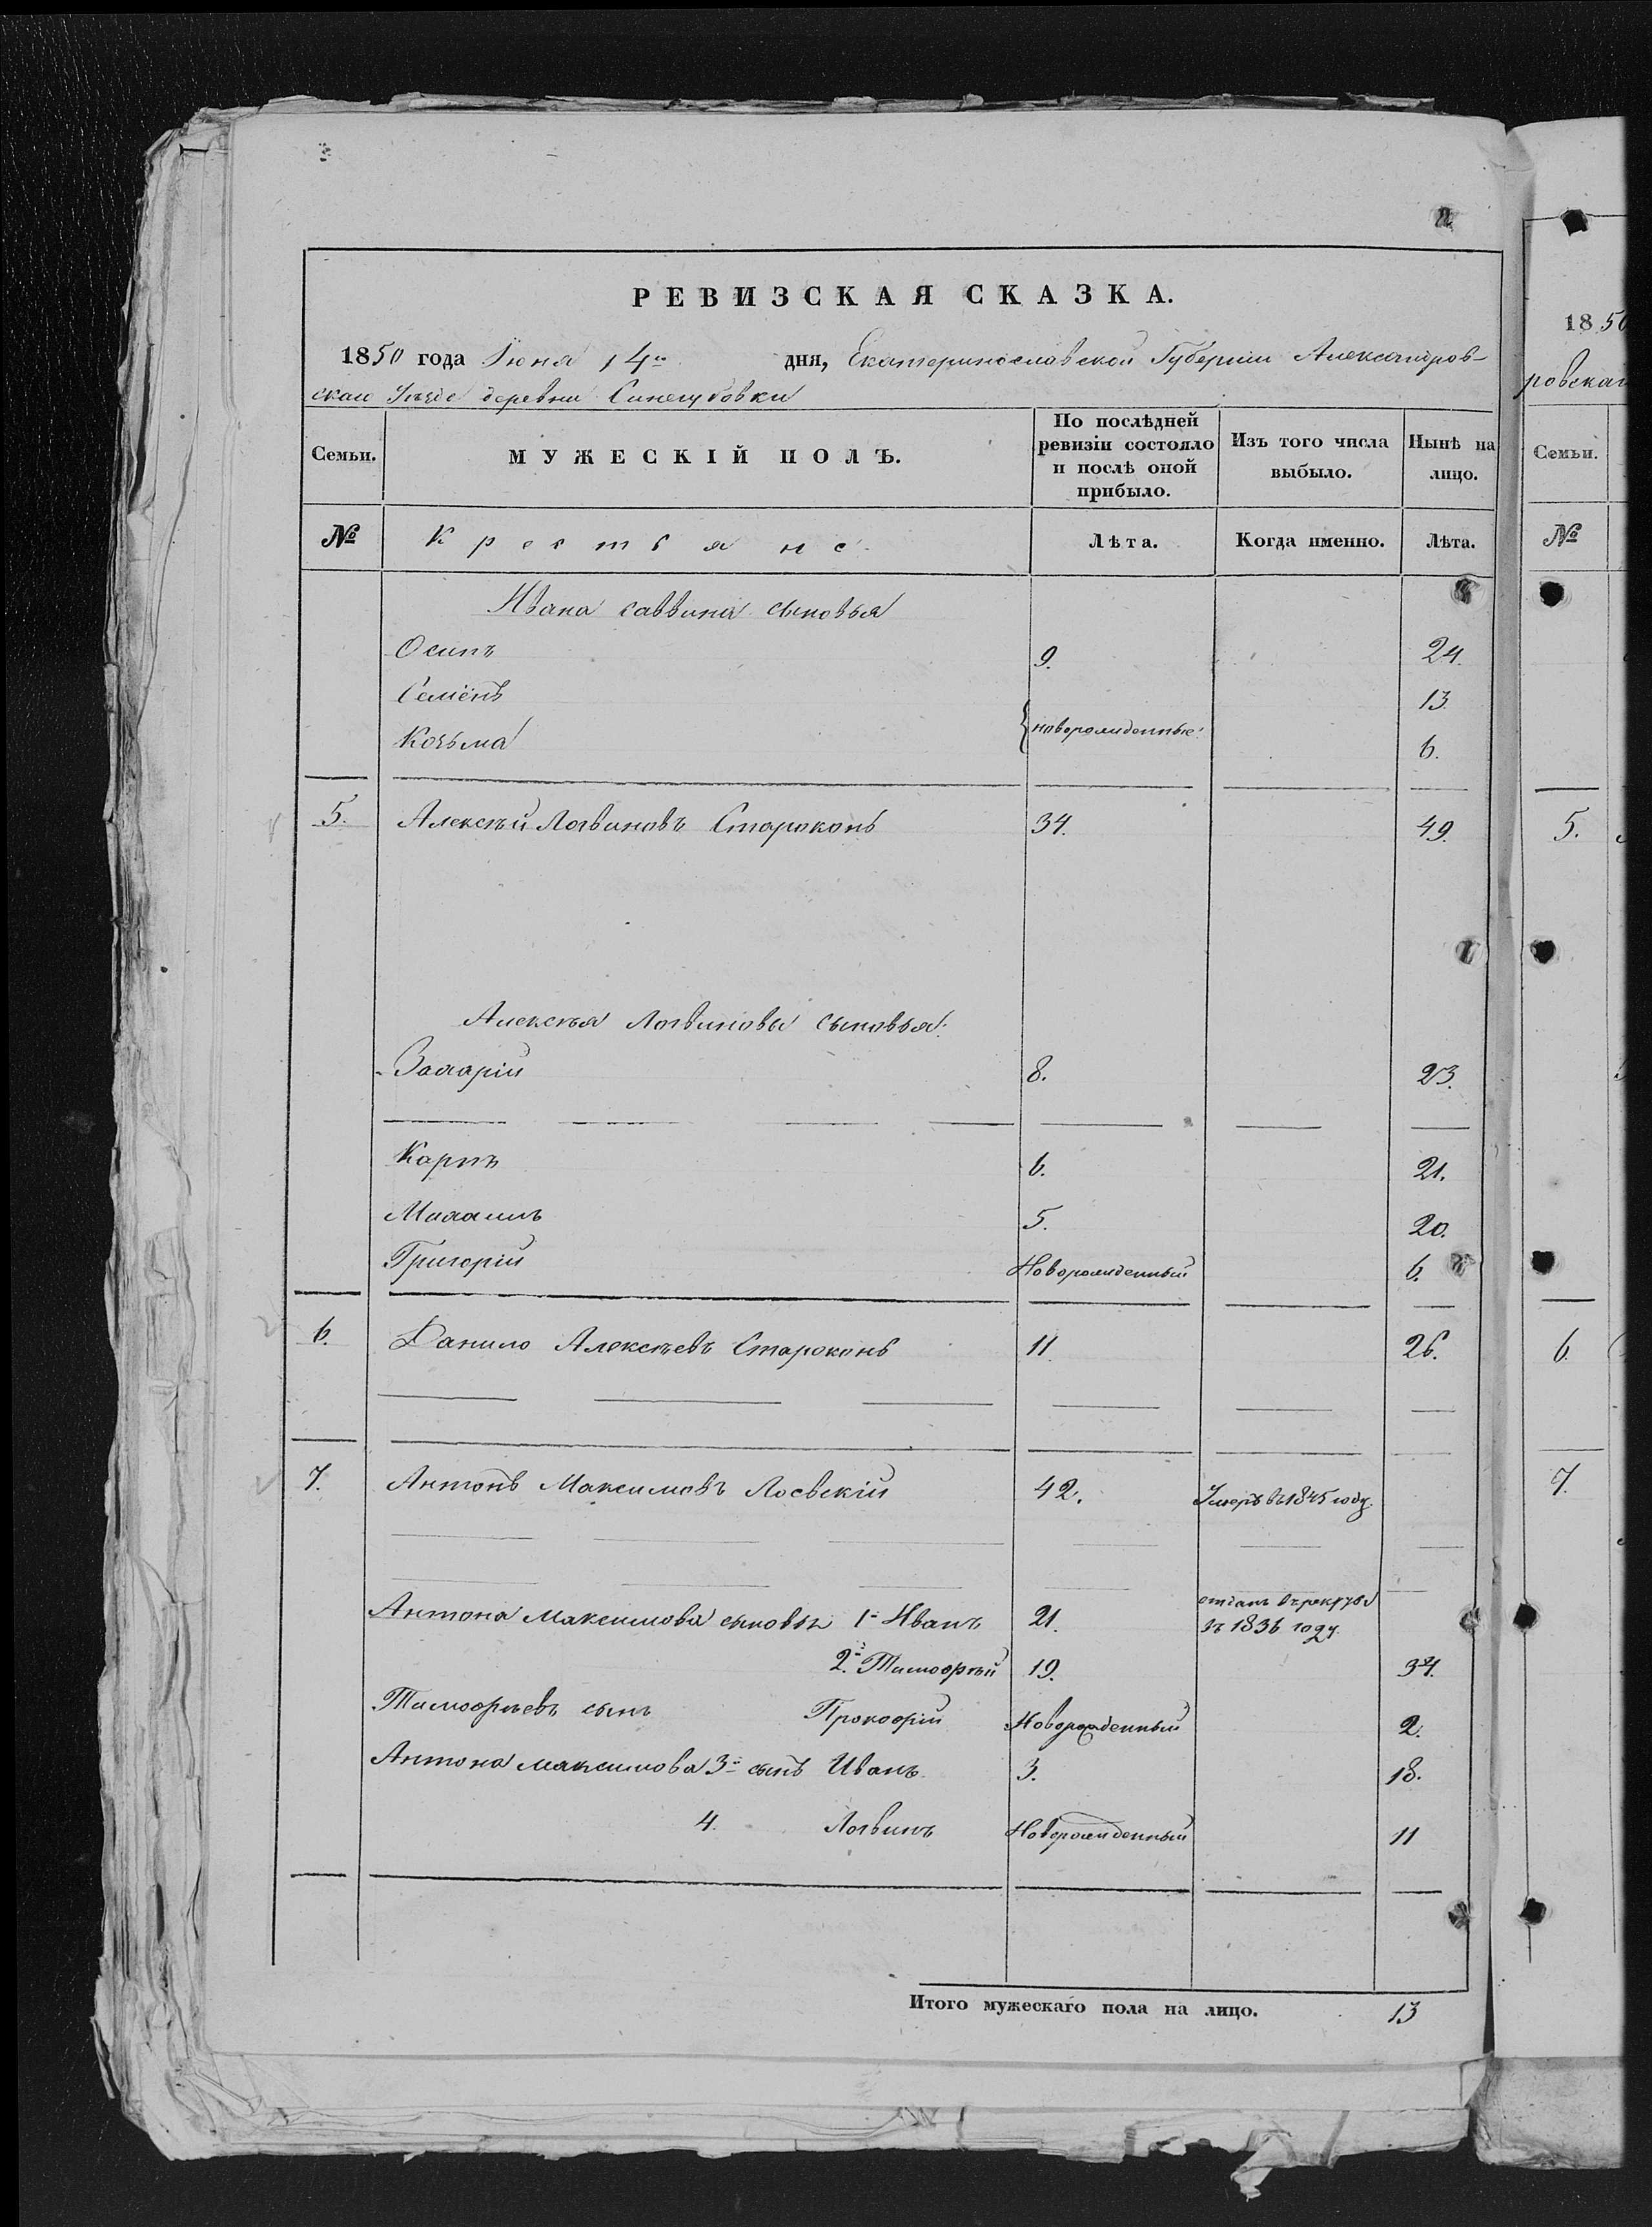 РЕВИЗСКАЯ СКАЗКА.
1850 года Іюня 14го дня, Екатеринославской Губерніи Александров-
скаго Уѣзда деревни Синегубовки
Семьи. МУЖЕСКІЙ ПОЛЪ. По послѣдней ревизіи состояло и послѣ оной прибыло. Изъ того числа выбыло. Нынѣ на лицо.
№ Крестьяне Лѣта. Когда именно. Лѣта.
Ивана Саввина сыновья
Осипъ 9. 24.
Семенъ 13.
новорожденные
Козьма 6.
5. Алексѣй Логвиновъ Староконь 34. 49.
Алексѣя Логвинова сыновья:
Захарій 8. 23.
Карпъ 6. 21.
Михаилъ 5. 20.
Григорій Новорожденный 6.
6. Данило Алексѣевъ Староконь 11 26.
7. Антонъ Максимовъ Лосвскій 42. Умеръ въ 1845 году.
Антона Максимова сыновья 1й Иванъ 21. отданъ въ рекруты
въ 1836 году.
2й Тимофѣй 19. 34.
Тимофѣевъ сынъ Прокофій Новорожденный 2.
Антона Максимова 3й сынъ Иванъ 3. 18.
4. Логвинъ Новорожденный 11
Итого мужескаго пола на лицо. 13
1850
ровскаг
Семьи.
№
5.
6.
7.